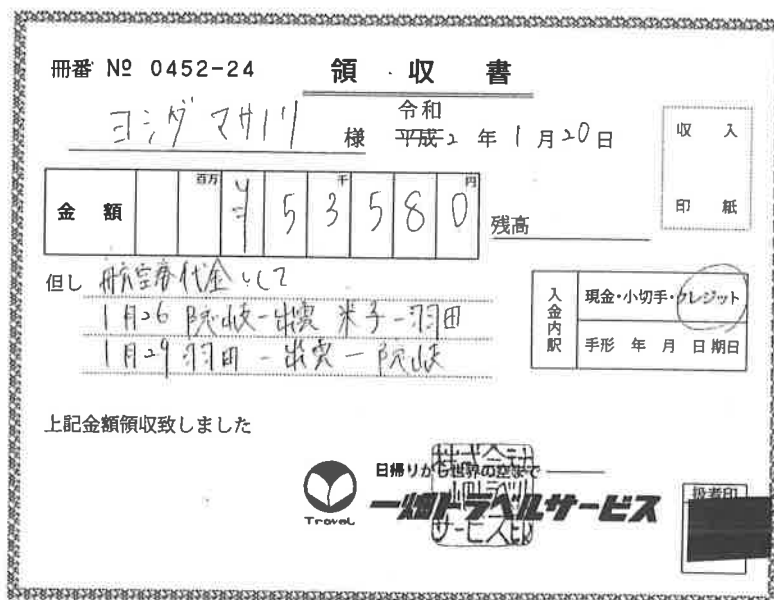 冊番 № 0452-24
領収書
ヨシダ マサノリ 様
令和
平成 2 年 1 月 20 日
収入
印紙
金額 百万 千 円
¥ 5 3 5 8 0
残高
但し 航空券代金として
1月26 隠岐－出雲 米子－羽田
1月29 羽田－出雲－隠岐
入金内訳
現金・小切手・クレジット
手形 年 月 日期日
上記金額領収致しました
日帰りから世界の空まで
Travel
一畑トラベルサービス
扱者印